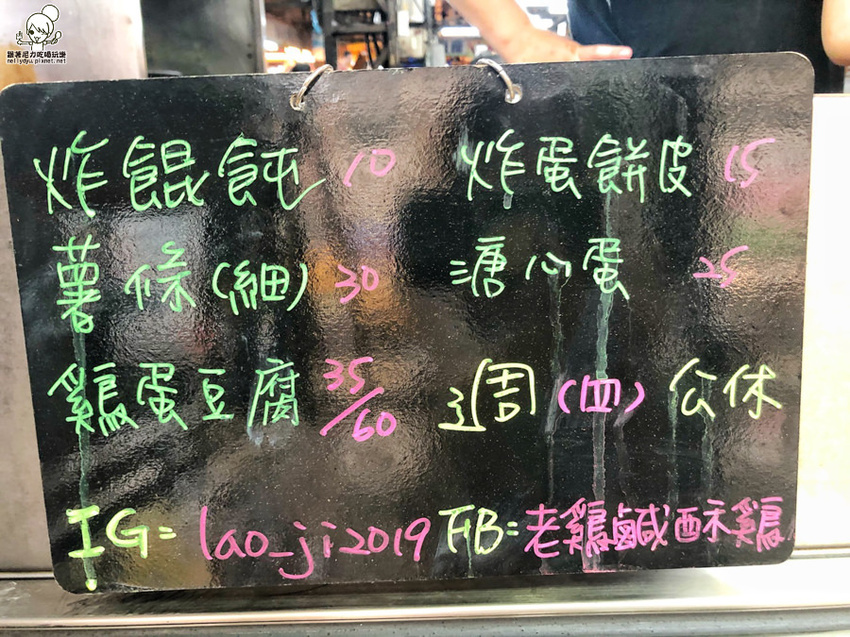 跟著尼力吃喝玩樂
nellydyu.pixnet.net
炸餛飩 10 炸蛋餅皮 15
薯條(細) 30 溏心蛋 25
雞蛋豆腐 35/60 週(四)公休
IG=lao_ji2019 FB=老雞鹹酥雞